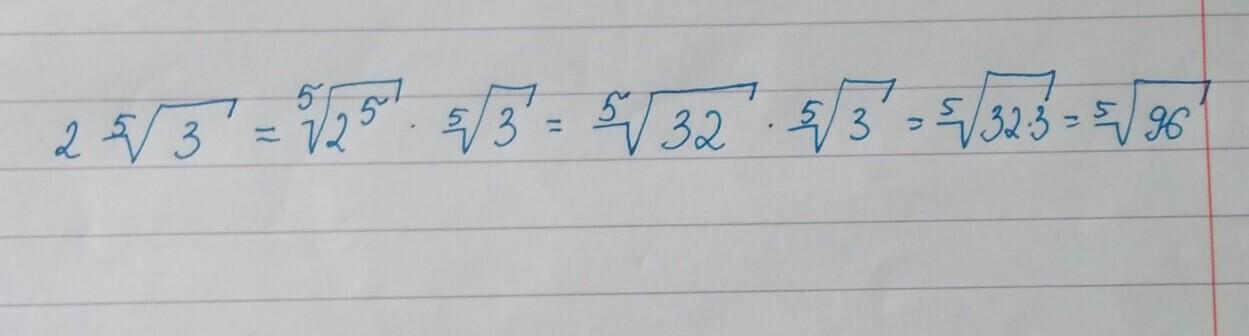 2 ⁵√3 = ⁵√2⁵ · ⁵√3 = ⁵√32 · ⁵√3 = ⁵√32·3 = ⁵√96